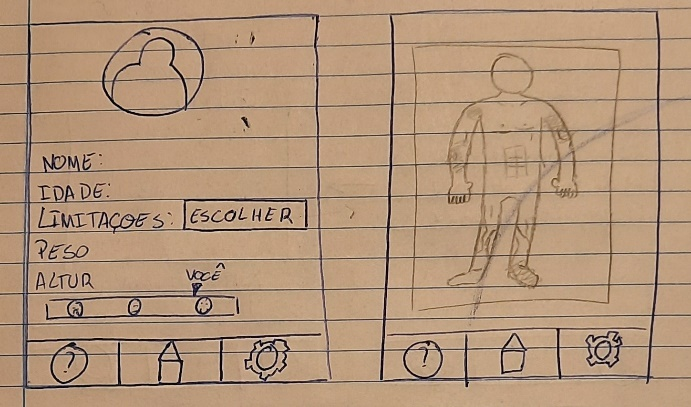 NOME:
IDADE:
LIMITAÇOES: ESCOLHER
PESO
ALTUR
VOCÊ
? ?